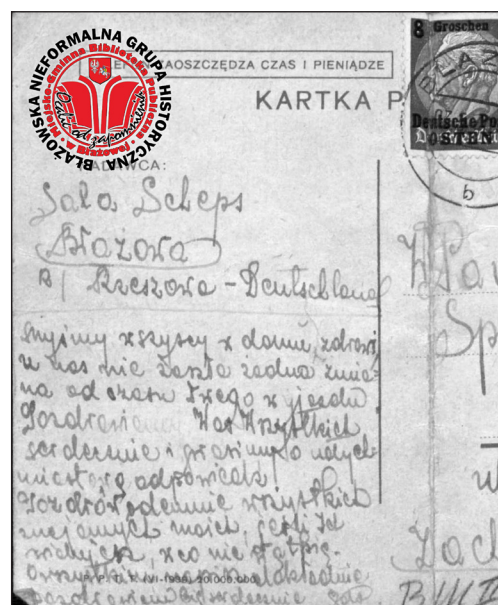 BŁAŻOWSKA NIEFORMALNA GRUPA HISTORYCZNA
Miejsko-Gminna Biblioteka Publiczna w Błażowej
Ocalić od zapomnienia
ZAOSZCZĘDZA CZAS I PIENIĄDZE
KARTKA P
8 Groschen
BŁAŻ
Deutsche Po
OSTEN
b
NADAWCA:
Sala Scheps
Błażowa
B/ Rzeszowa - Deutschland
W Pan
Sp
w
Zach
myśmy wszyscy w domu zdrowi,
u nas nie zaszła żadna zmia-
na od czasu Twego wyjazdu
Pozdrowienia Was Wszystkich
serdecznie i prosimy o natych-
miastową odpowiedź.
Pozdrów odemnie wszystkich
znajomych moich, jeśli ich
widujesz, co nie stał się.
wszystko dokładnie
P. P. T. T. (VI-1938) 20.000.000
pozdrowienia serdecznie Sala